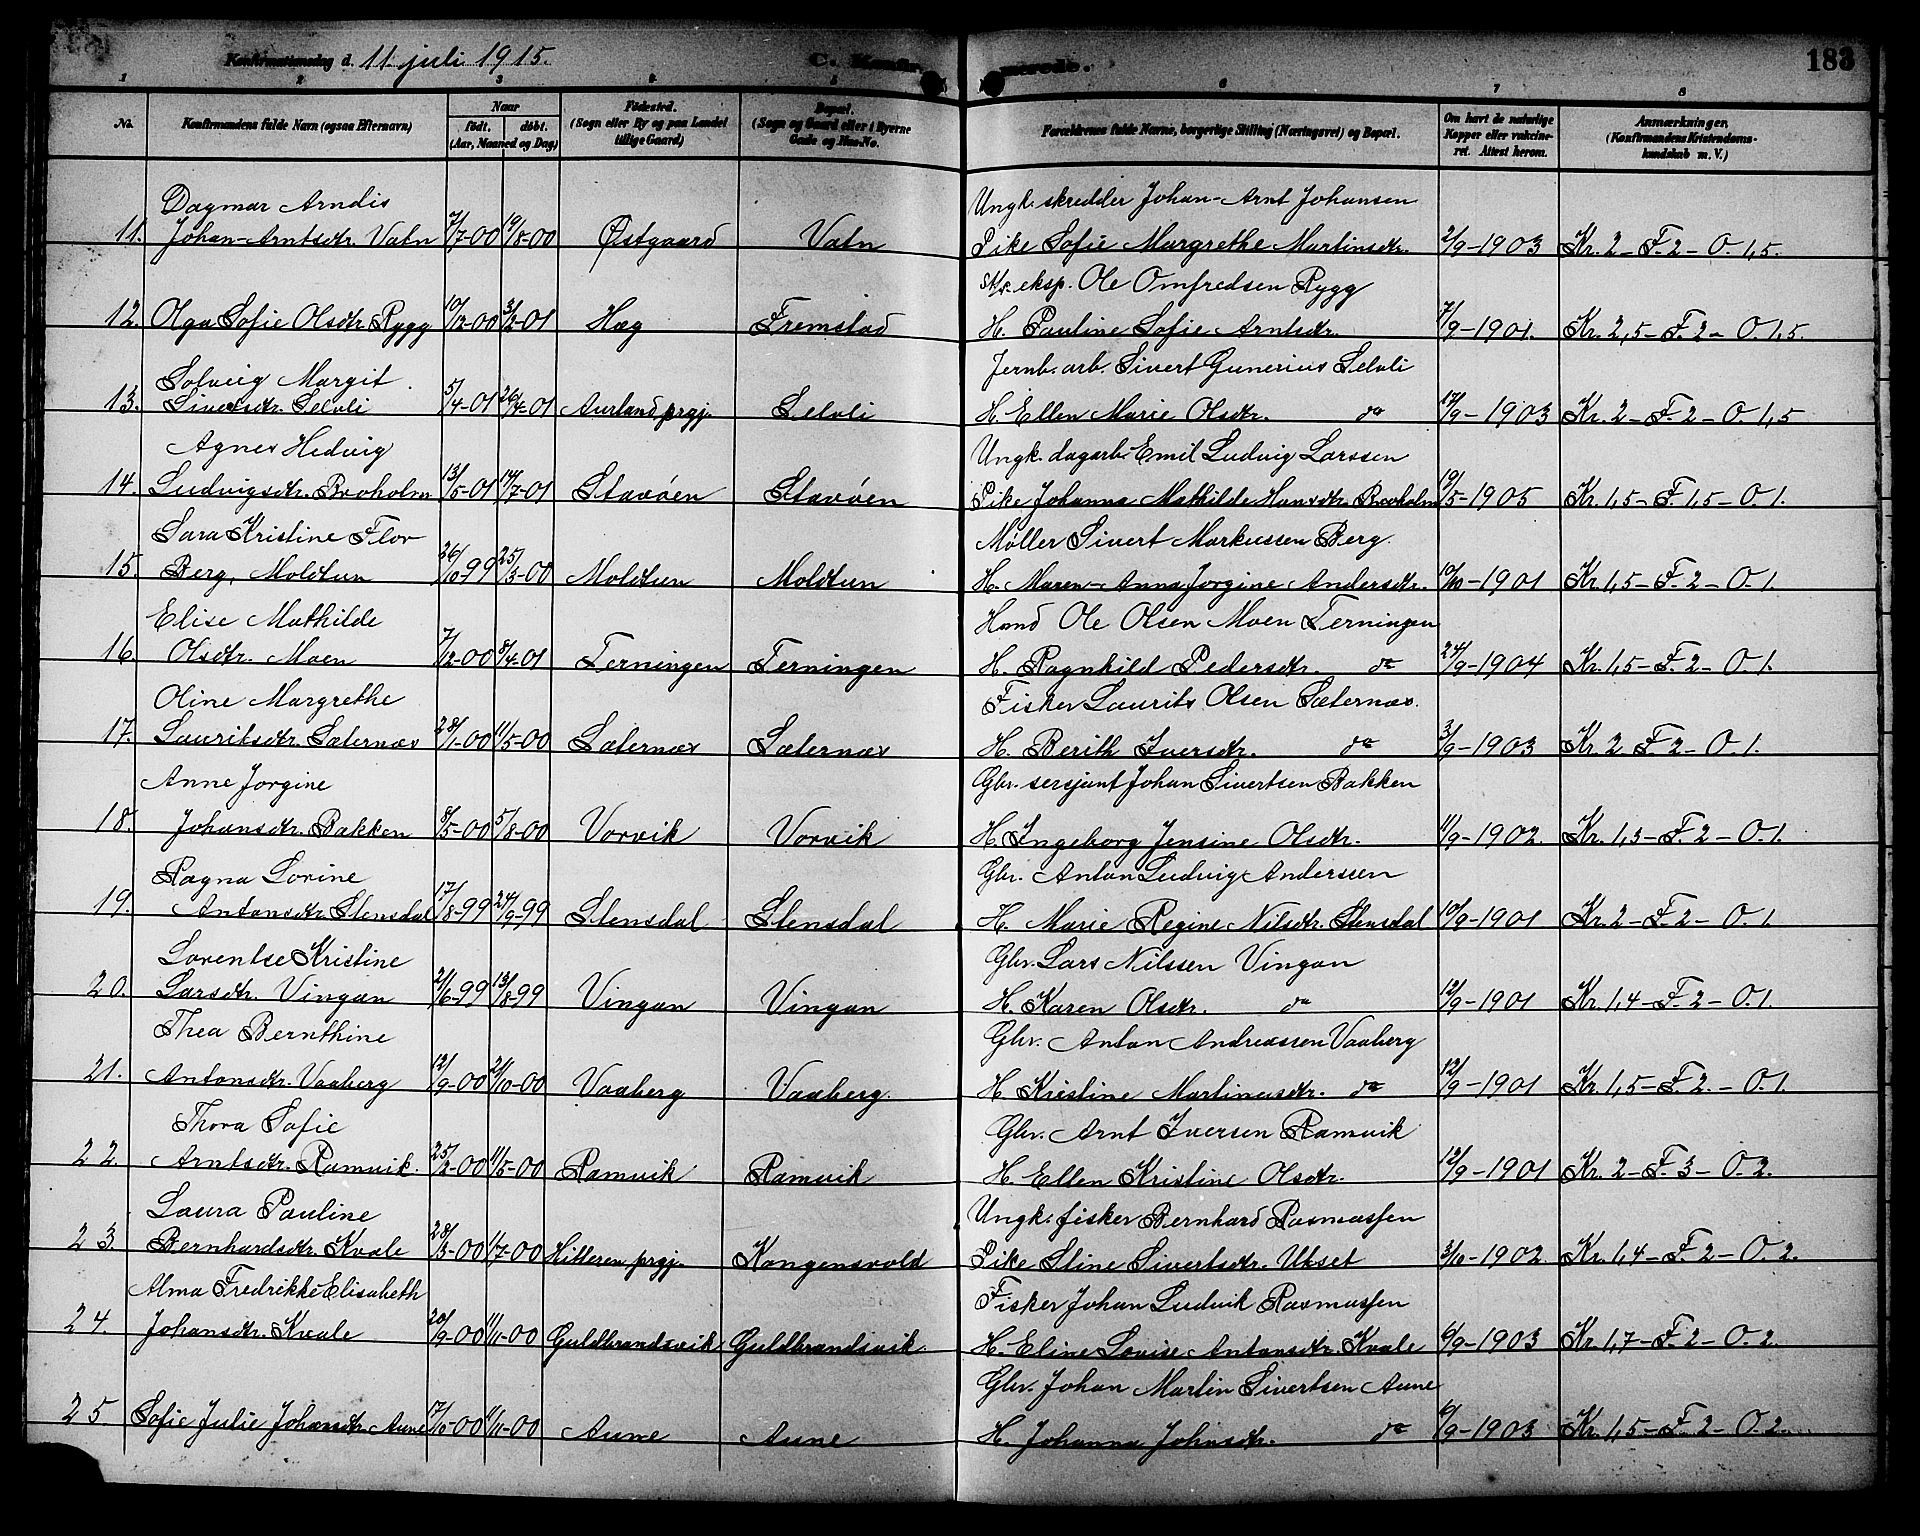 Konfirmationsdag d. 11 juli 1915.
C. Konfirmerede.
183
1 2 3 4 5 6 7 8
No.
Konfirmandens fulde Navn (ogsaa Efternavn)
Naar
født. døbt.
(Aar, Maaned og Dag)
Fødested.
(Sogn eller By og paa Landet
tillige Gaard)
Bopæl.
(Sogn og Gaard eller i Byerne
Gade og Hus-No.
Forældrenes fulde Navne, borgerlige Stilling (Næringsvei) og Bopæl.
Om havt de naturlige
Kopper eller vakcine-
ret. Attest herom.
Anmærkninger,
(Konfirmandens Kristendoms-
kundskab m. V.)
Dagmar Arndis Ungk. skredder Johan-Arnt Johansen
11. Johan-Arntsdtr. Vatn 7/7-00 19/8-00 Østgaard Vatn Pike Sofie Margrethe Martinsdtr. 2/9-1903 Kr. 2 - F. 2 - O. 1,5.
St. eksp. Ole Omfredsen Rygg
12. Olga Sofie Olsdtr. Rygg 10/12-00 3/2-01 Hæg Fremstad H. Pauline Sofie Arntsdtr. 7/9-1901. Kr. 2,5 - F. 2 - O. 1,5.
Solveig Margit Jernb. arb. Sivert Gunerius Selvli
13. Sivertsdtr. Selvli 5/4-01 26/4-01 Aurland prgj. Selvli H. Ellen Marie Olsdtr. do 17/9-1903 Kr. 2 - F. 2 - O. 1,5
Agnes Hedvig Ungk. dagarb. Emil Ludvig Larssen
14. Ludvigsdtr. Broholm 13/5-01 14/7-01 Stavøen Stavøen Pike Johanna Mathilde Hansdtr. Broholm 19/5-1905 Kr. 1,5 - F. 1,5 - O. 1.
Sara Kristine Flor Møller Sivert Markussen Berg.
15. Berg, Moldtun 26/10-99 25/3-00 Moldtun Moldtun H. Maren-Anna Jorgine Andersdtr. 10/10-1901 Kr. 1,5 - F. 2 - O. 1.
Elise Mathilde Hand Ole Olsen Moen Terningen
16. Olsdtr. Moen 7/12-00 8/4-01 Terningen Terningen H. Ragnhild Pedersdtr. do 24/9-1904 Kr. 1,5 - F. 2 - O. 1.
Oline Margrethe Fisker Laurits Olsen Sæternæs.
17. Lauritsdtr. Sæternæs 28/1-00 11/5-00 Sæternæs Sæternæs H. Berith Iversdtr. do 3/9-1903 Kr. 2 F. 2 - O. 1.
Anne Jorgine Gbr. sersjant Johan Sivertsen Bakken
18. Johansdtr. Bakken 8/5-00 5/8-00 Vorvik Vorvik H. Ingeborg Jensine Olsdtr. 11/9-1902. Kr. 1,3 - F. 2 - O. 1.
Ragna Lovine Gbr. Anton Ludvig Anderssen
19. Antonsdtr. Stensdal 17/8-99 24/9-99 Stensdal Stensdal H. Marie Regine Nilsdtr. Stensdal 10/9-1901 Kr. 2 - F. 2 - O. 1.
Lorentse Kristine Gbr. Lars Nilssen Vingan
20. Larsdtr. Vingan 21/6-99 13/8-99 Vingan Vingan H. Karen Olsdtr. do 12/9-1901 Kr. 1,4 - F. 2 - O. 1.
Thea Bernthine Gbr. Anton Andreassen Vaaberg
21. Antonsdtr. Vaaberg 12/9-00 21/10-00 Vaaberg Vaaberg. H. Kristine Martinusdtr. do 12/9-1901 Kr. 1,5 - F. 2. - O. 1.
Thora Sofie Gbr. Arnt Iversen Ramvik
22. Arntsdtr. Ramvik. 25/2-00 11/5-00 Ramvik Ramvik H. Ellen Kristine Olsdtr. 12/9-1901 Kr. 2 - F. 3 - O. 2.
Laura Pauline Ungk. fisker Bernhard Rasmussen
23. Bernhardsdtr. Kvale 28/3-00 1/7-00 Hitteren prgj. Kongensvold Pike Stine Sivertsdtr. Utset 3/10-1902. Kr. 1,4 - F. 2 - O. 2.
Alma Fredrikke Elisabeth Fisker Johan Ludvik Rasmussen
24. Johansdtr. Kvale 20/9-00 11/11-00 Guldbrandsvik Guldbrandsvik. H. Eline Lovise Antonsdtr. Kvale 6/9-1903 Kr. 1,7 - F. 2 - O. 2.
Gbr. Johan Martin Sivertsen Aune
25 Sofie Julie Johansdtr. Aune 17/10-00 11/11-00 Aune Aune H. Johanna Johnsdtr. do 6/9-1903 Kr. 1,5 - F. 2 - O. 2.